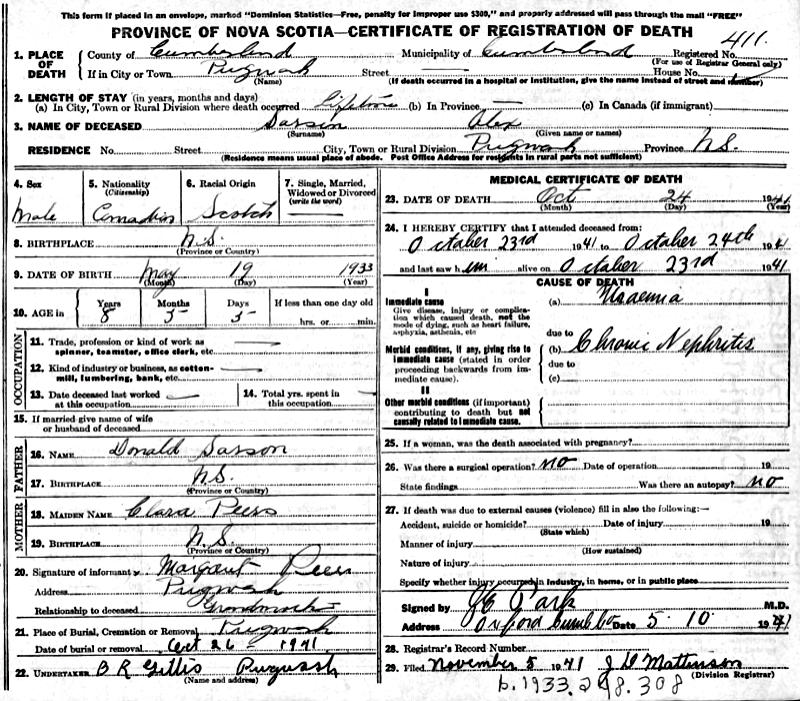 This form if placed in an envelope, marked "Dominion Statistics—Free, penalty for improper use $300," and properly addressed will pass through the mail "FREE"
PROVINCE OF NOVA SCOTIA—CERTIFICATE OF REGISTRATION OF DEATH
411.
1. PLACE OF DEATH County of Cumberland Municipality of Cumberland Registered No.
(For use of Registrar General only)
If in City or Town Pugwash Street — House No.
(Name) (If death occurred in a hospital or institution, give the name instead of street and number)
2. LENGTH OF STAY (in years, months and days)
(a) In City, Town or Rural Division where death occurred Lifetime (b) In Province — (c) In Canada (if immigrant)
3. NAME OF DECEASED Sarson Alex
(Surname) (Given name or names)
RESIDENCE No. Street City, Town or Rural Division Pugwash Province N.S.
(Residence means usual place of abode. Post Office Address for residents in rural parts not sufficient)
4. Sex 5. Nationality (Citizenship) 6. Racial Origin 7. Single, Married, Widowed or Divorced (write the word)
Male Canadian Scotch —
8. BIRTHPLACE N.S.
(Province or Country)
9. DATE OF BIRTH May 19 1933
(Month) (Day) (Year)
10. AGE in Years Months Days If less than one day old
8 5 5 hrs. or min.
OCCUPATION
11. Trade, profession or kind of work as spinner, teamster, office clerk, etc. —
12. Kind of industry or business, as cotton-mill, lumbering, bank, etc. —
13. Date deceased last worked at this occupation — 14. Total yrs. spent in this occupation —
15. If married give name of wife or husband of deceased
FATHER
16. NAME Donald Sarson
17. BIRTHPLACE N.S.
(Province or Country)
MOTHER
18. MAIDEN NAME Clara Peers
19. BIRTHPLACE N.S.
(Province or Country)
20. Signature of informant Margaret Peers
Address Pugwash
Relationship to deceased Grandmother
21. Place of Burial, Cremation or Removal Pugwash
Date of burial or removal Oct 26 1941
22. UNDERTAKER B R Gillis Pugwash
(Name and address)
MEDICAL CERTIFICATE OF DEATH
23. DATE OF DEATH Oct 24 1941
(Month) (Day) (Year)
24. I HEREBY CERTIFY that I attended deceased from:
October 23rd 1941 to October 24th 1941
and last saw him alive on October 23rd 1941
CAUSE OF DEATH
I
Immediate cause (a) Uraemia
Give disease, injury or complication which caused death, not the mode of dying, such as heart failure, asphyxia, asthenia, etc
due to
Morbid conditions, if any, giving rise to immediate cause (stated in order proceeding backwards from immediate cause). (b) Chronic Nephritis
due to
(c)
II
Other morbid conditions (if important) contributing to death but not causally related to immediate cause.
25. If a woman, was the death associated with pregnancy?
26. Was there a surgical operation? no Date of operation 19
State findings Was there an autopsy? no
27. If death was due to external causes (violence) fill in also the following:—
Accident, suicide or homicide? Date of injury 19
(State which)
Manner of injury
(How sustained)
Nature of injury
Specify whether injury occurred in industry, in home, or in public place
Signed by J E Park M.D.
Address Oxford Cumb Co Date 5 10 1941
28. Registrar's Record Number
29. Filed November 5 1941 J D Mattinson
(Division Registrar)
b. 1933. 298. 308